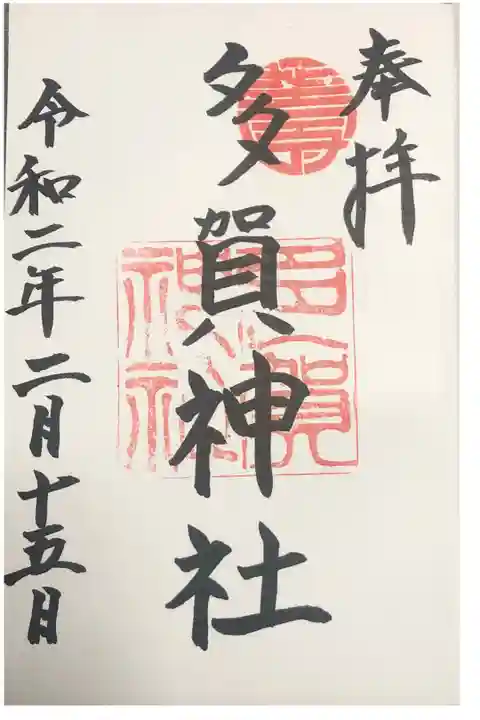 奉拝
多賀神社
多賀
神社
令和二年二月十五日